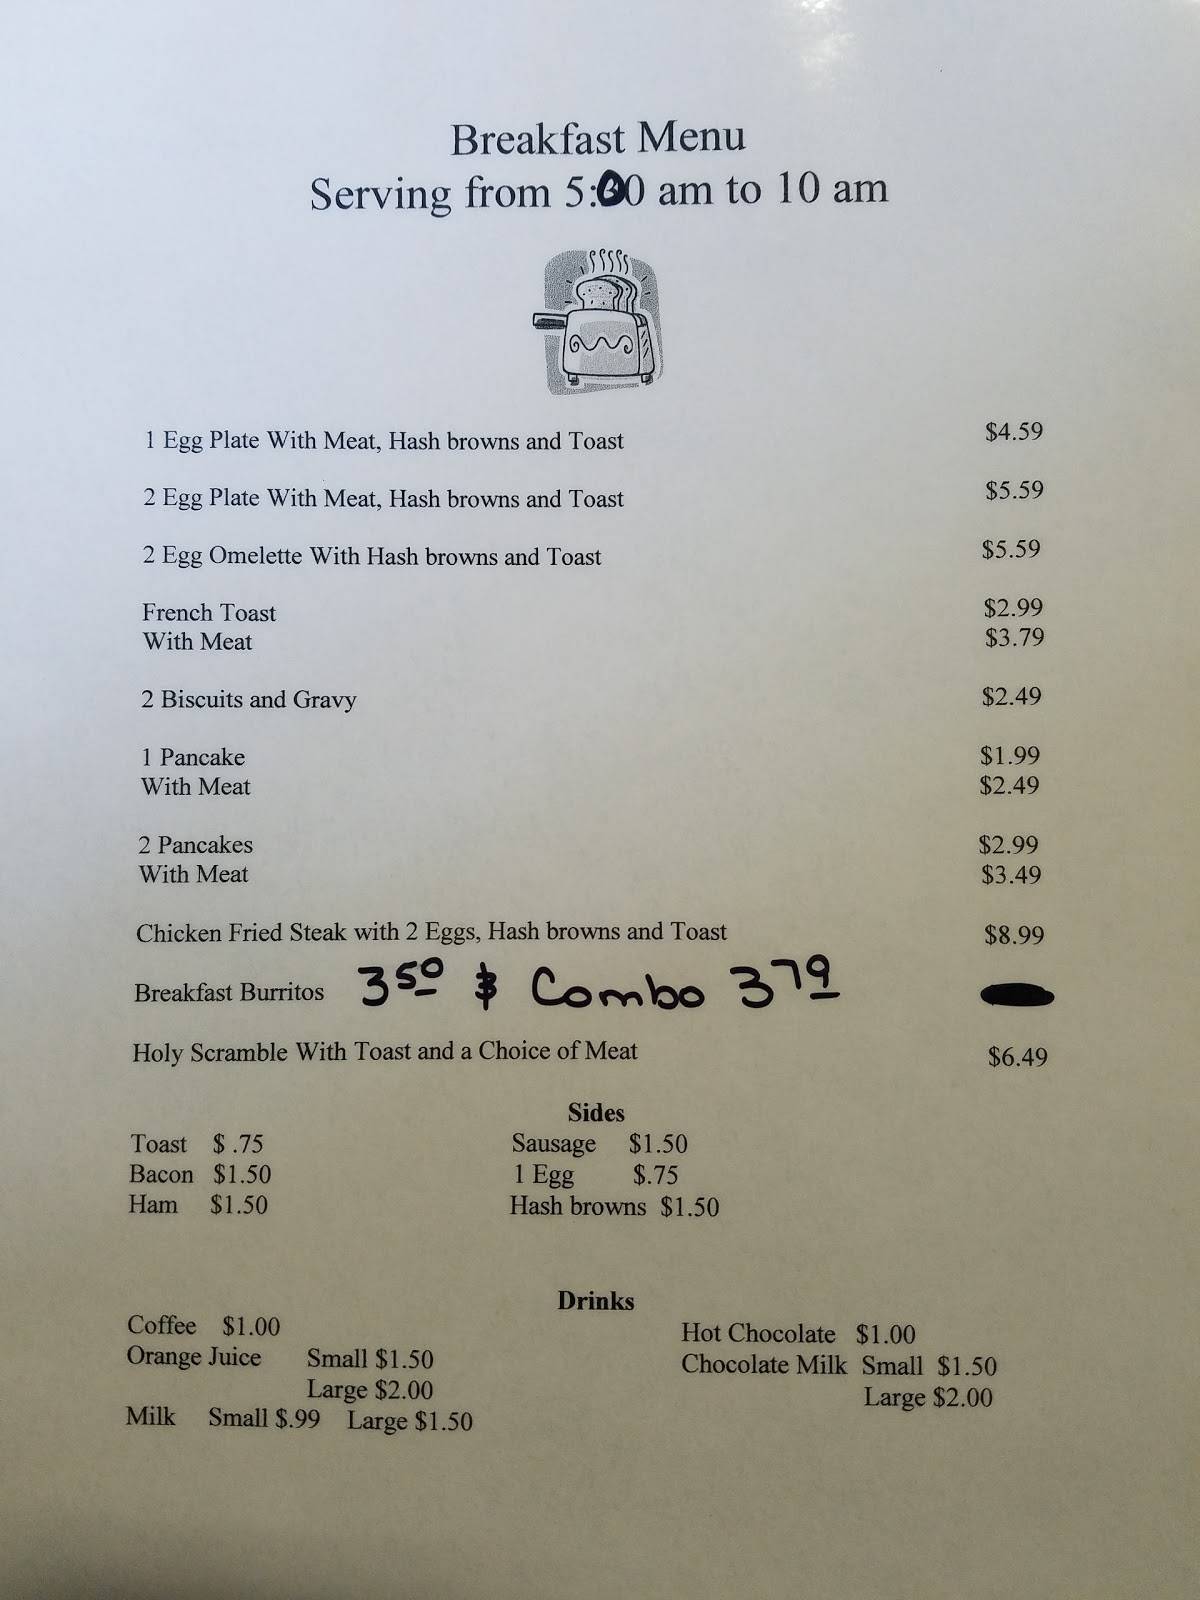 Breakfast Menu
Serving from 5:00 am to 10 am
1 Egg Plate With Meat, Hash browns and Toast $4.59
2 Egg Plate With Meat, Hash browns and Toast $5.59
2 Egg Omelette With Hash browns and Toast $5.59
French Toast $2.99
With Meat $3.79
2 Biscuits and Gravy $2.49
1 Pancake $1.99
With Meat $2.49
2 Pancakes $2.99
With Meat $3.49
Chicken Fried Steak with 2 Eggs, Hash browns and Toast $8.99
Breakfast Burritos 3 50 & Combo 3 79
Holy Scramble With Toast and a Choice of Meat $6.49
Sides
Toast $ .75 Sausage $1.50
Bacon $1.50 1 Egg $.75
Ham $1.50 Hash browns $1.50
Drinks
Coffee $1.00 Hot Chocolate $1.00
Orange Juice Small $1.50 Chocolate Milk Small $1.50
Large $2.00 Large $2.00
Milk Small $.99 Large $1.50